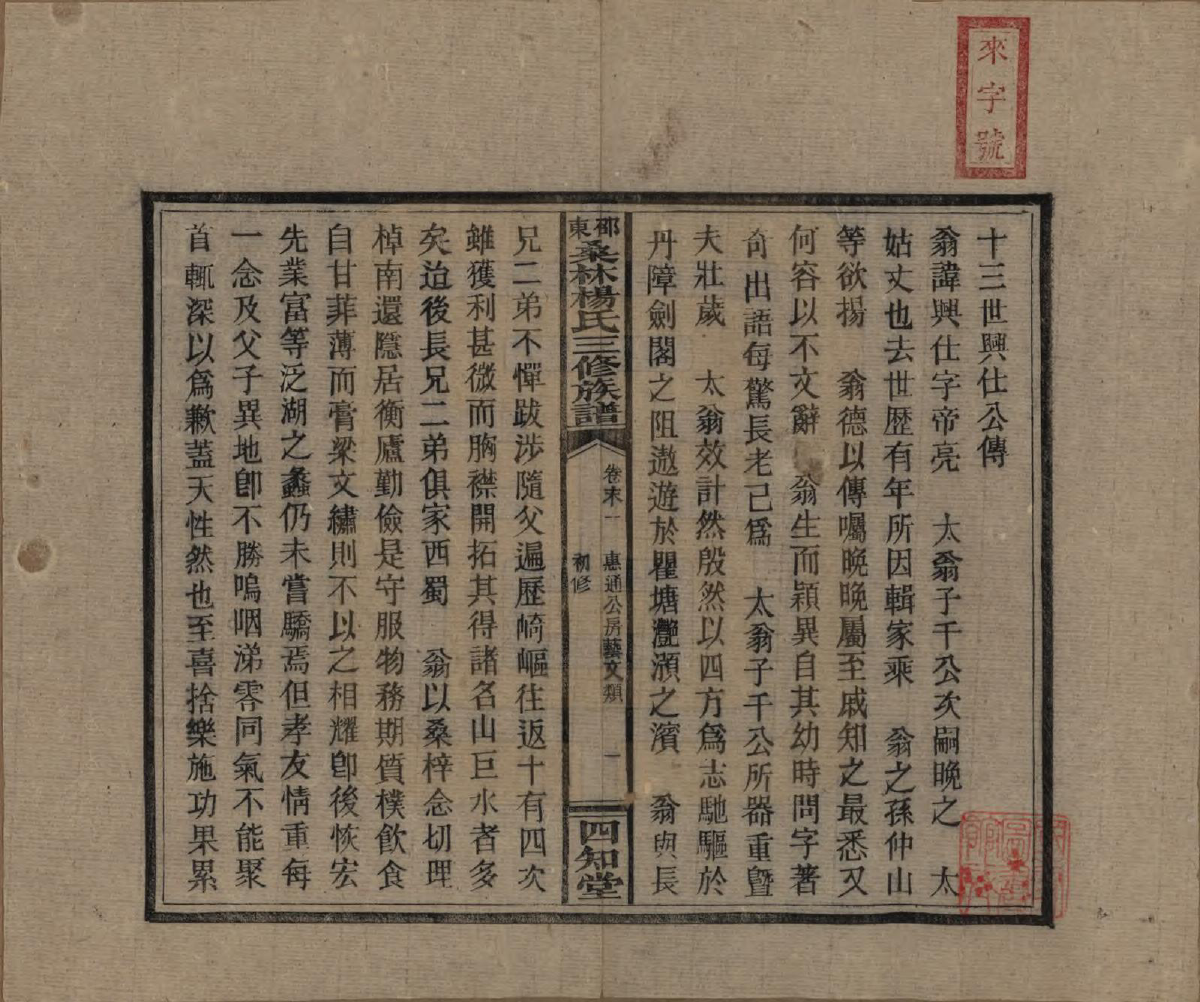 來字號
十三世興仕公傳
翁諱興仕字帝亮 太翁子千公次嗣晚之 太
姑丈也去世歷有年所因輯家乘 翁之孫仲山
等欲揚 翁德以傳囑晚晚屬至戚知之最悉又
何容以不文辭 翁生而穎異自其幼時問字著
奇出語每驚長老已爲 太翁子千公所器重曁
夫壯歲 太翁效計然殷然以四方爲志馳驅於
丹障劍閣之阻遨遊於瞿塘灔澦之濱 翁與長
邵東桑林楊氏三修族譜 卷末一 惠通公房藝文類 初修 一 四知堂
兄二弟不憚跋涉隨父遍歷崎嶇往返十有四次
雖獲利甚微而胸襟開拓其得諸名山巨水者多
矣迨後長兄二弟俱家西蜀 翁以桑梓念切理
棹南還隱居衡廬勤儉是守服物務期質樸飲食
自甘菲薄而膏粱文繡則不以之相耀卽後恢宏
先業富等泛湖之蠡仍未嘗驕焉但孝友情重每
一念及父子異地卽不勝嗚咽涕零同氣不能聚
首輒深以爲歉蓋天性然也至喜捨樂施功果累